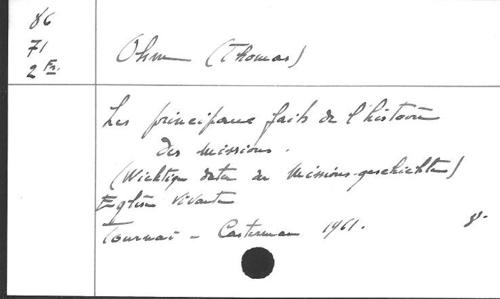 86
71
2 Fr.
Ohm (Thomas)
Les principaux faits de l'histoire
des missions.
(Wichtige daten der Missions-geschichte)
Eglise vivante
Tournai - Casterman 1961. 8°